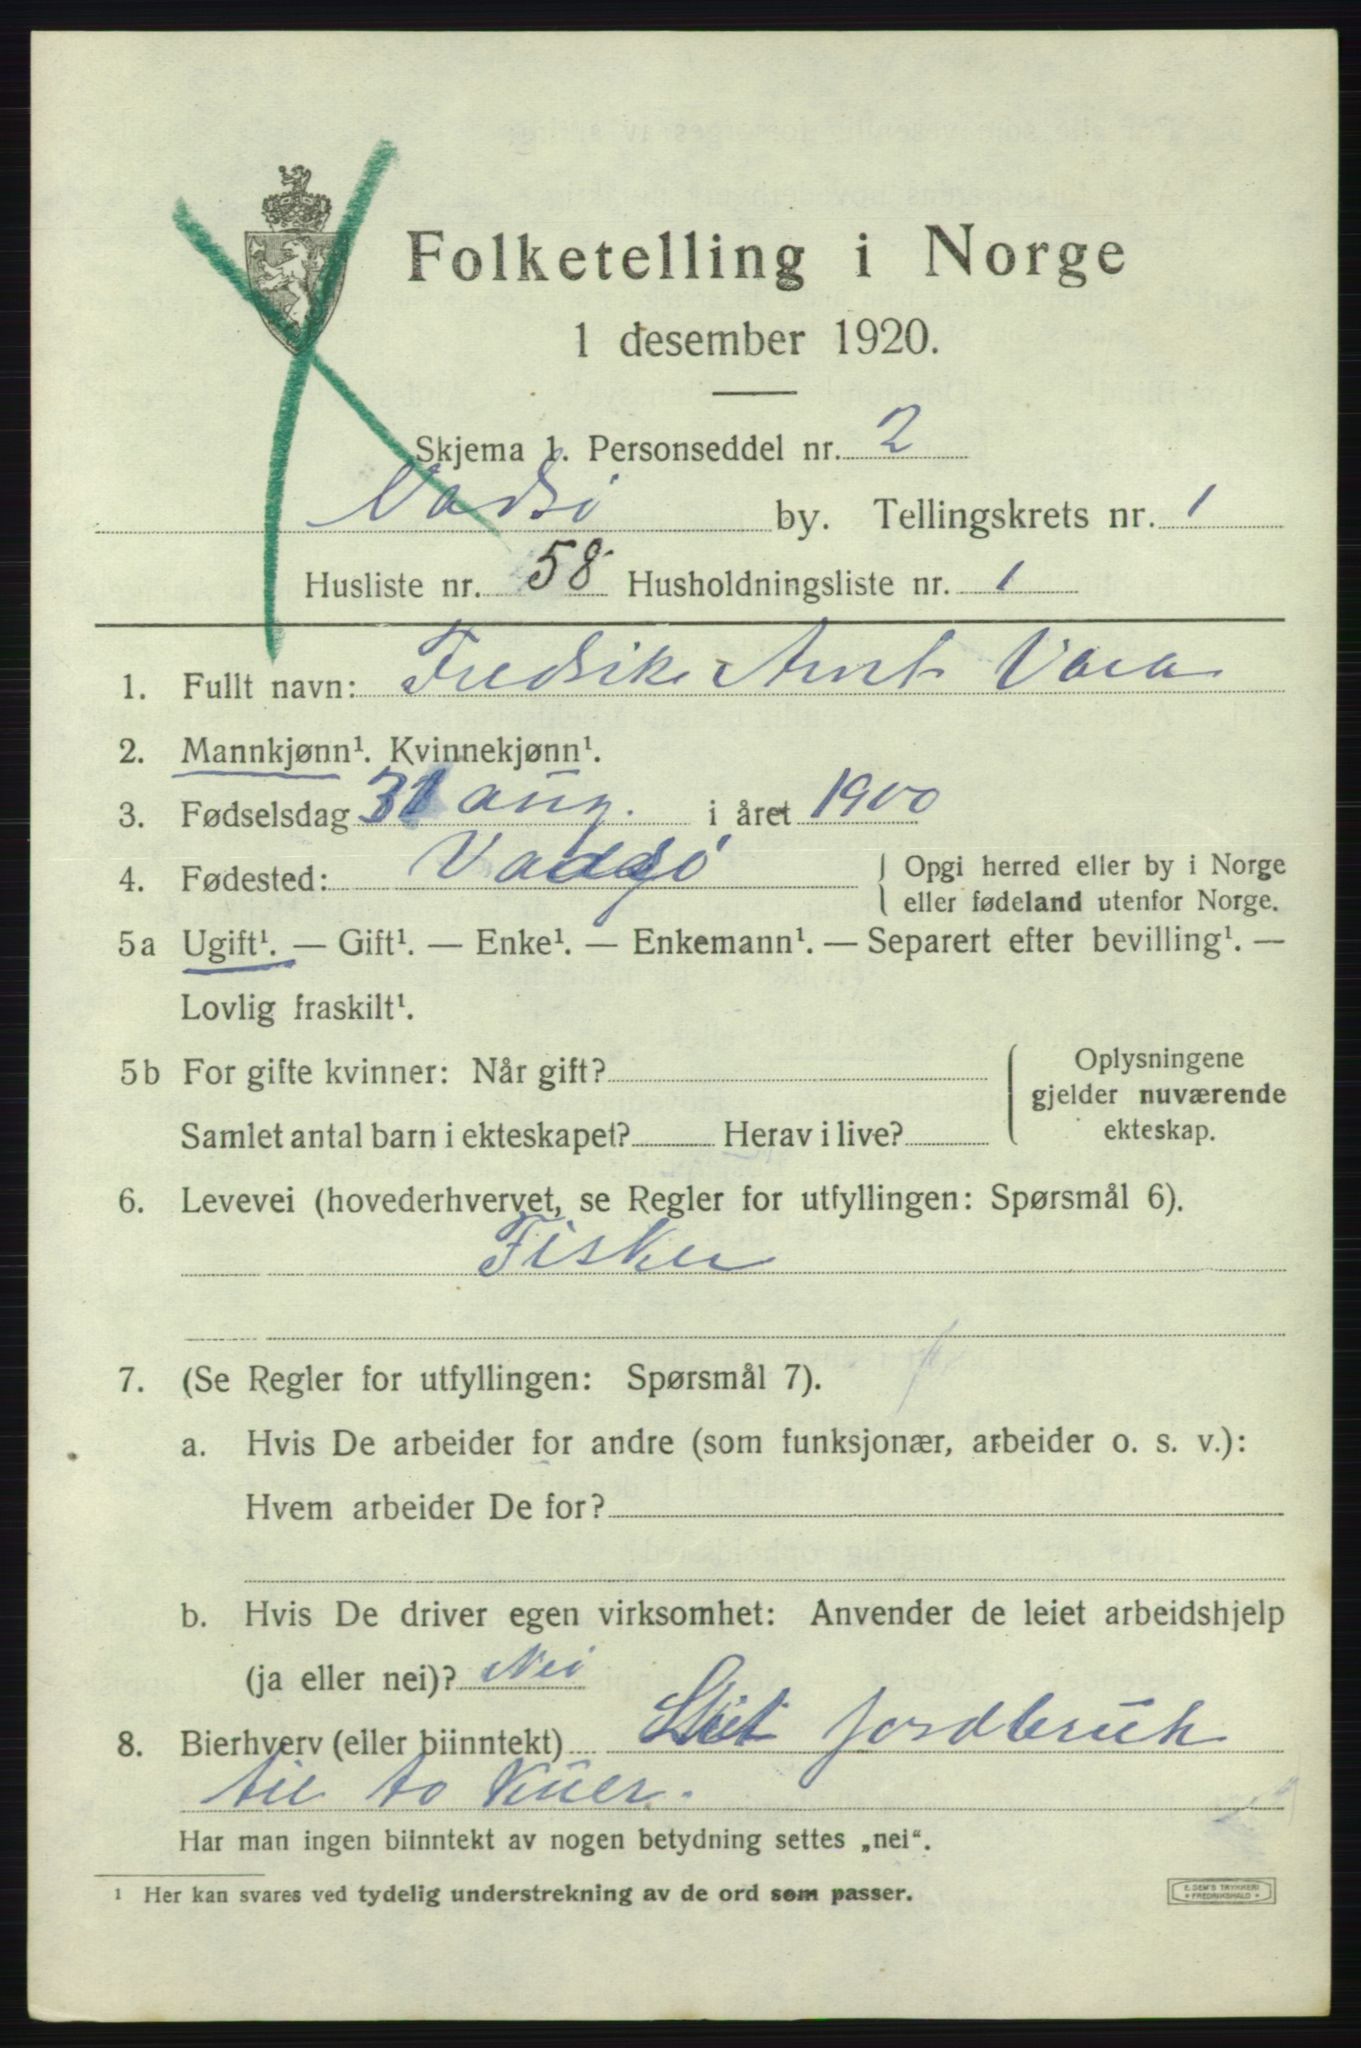 Folketelling i Norge
1 desember 1920.
Skjema 1. Personseddel nr. 2
Vadsø by. Tellingskrets nr. 1
Husliste nr. 58 Husholdningsliste nr. 1
1. Fullt navn: Fredrik Arnt Vara
2. Mannkjønn¹. Kvinnekjønn¹.
3. Fødselsdag 31 aug. i året 1900
4. Fødested: Vadsø { Opgi herred eller by i Norge
eller fødeland utenfor Norge.
5a Ugift¹. — Gift¹. — Enke¹. — Enkemann¹. — Separert efter bevilling¹. —
Lovlig fraskilt¹.
5b For gifte kvinner: Når gift? { Oplysningene
gjelder nuværende
Samlet antal barn i ekteskapet? Herav i live? ekteskap.
6. Levevei (hovederhvervet, se Regler for utfyllingen: Spørsmål 6).
Fisker
7. (Se Regler for utfyllingen: Spørsmål 7).
a. Hvis De arbeider for andre (som funksjonær, arbeider o. s. v.):
Hvem arbeider De for?
b. Hvis De driver egen virksomhet: Anvender de leiet arbeidshjelp
(ja eller nei)? Nei
8. Bierhverv (eller biinntekt) jordbruk
til to Kuer.
Har man ingen biinntekt av nogen betydning settes „nei“.
¹ Her kan svares ved tydelig understrekning av de ord som passer.
E. SEM'S TRYKKERI
* FREDRIKSHALD *